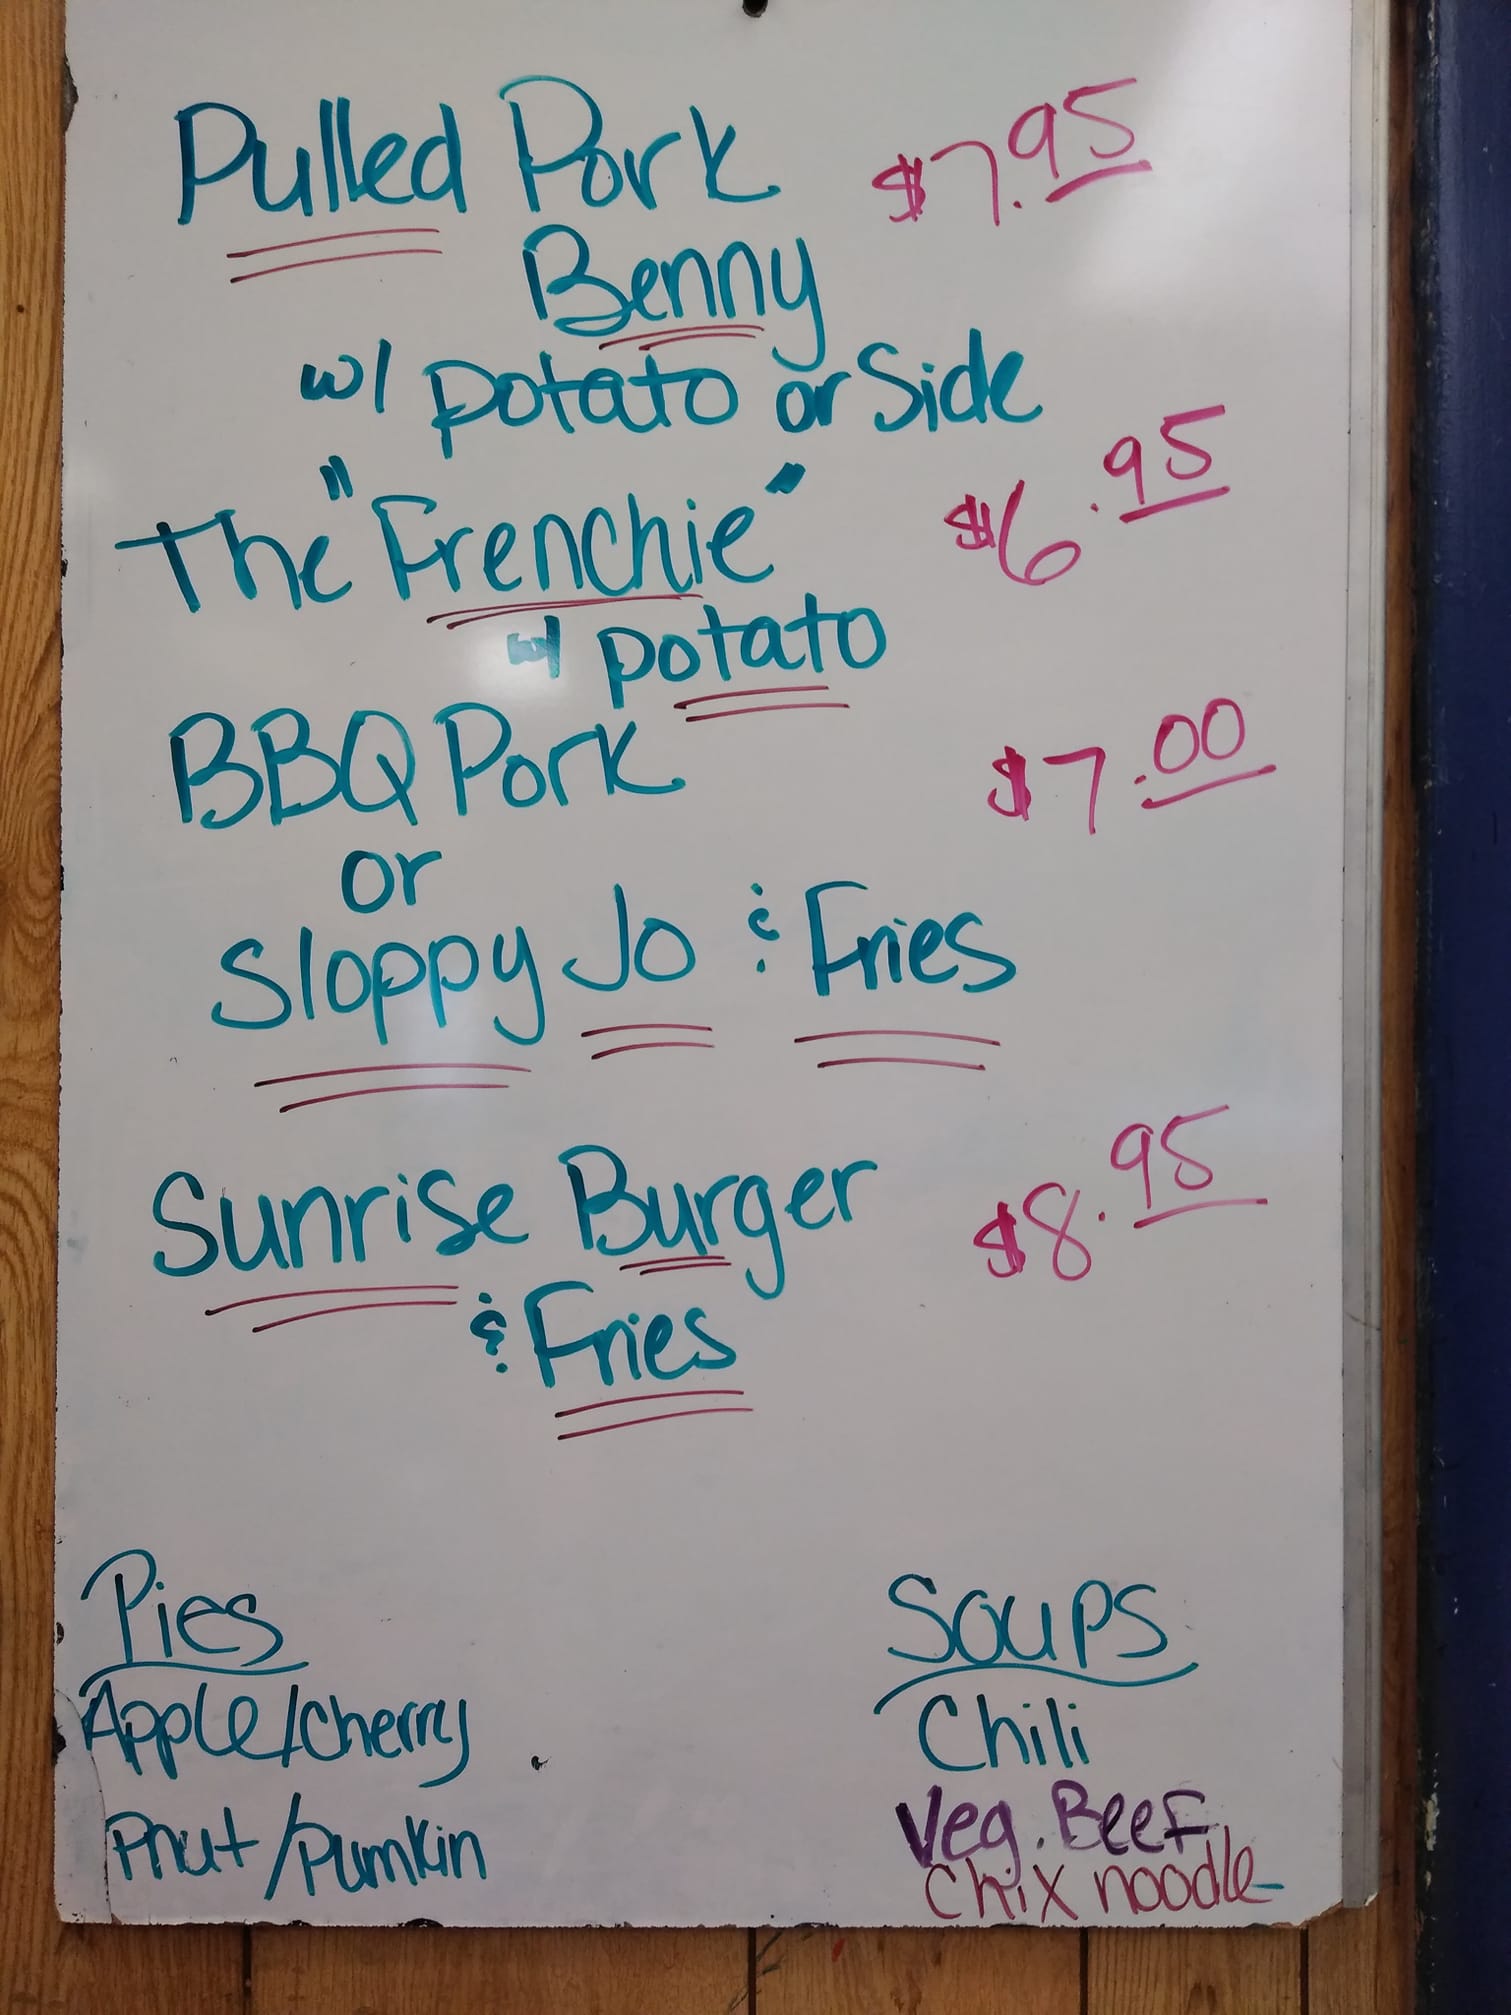 Pulled Pork $7.95
Benny
w/ potato or Side
The "Frenchie" $6.95
w/ potato
BBQ Pork $7.00
or
Sloppy Jo & Fries
Sunrise Burger $8.95
& Fries
Pies
Apple/Cherry
Pnut/Pumkin
Soups
Chili
Veg. Beef
Chix noodle